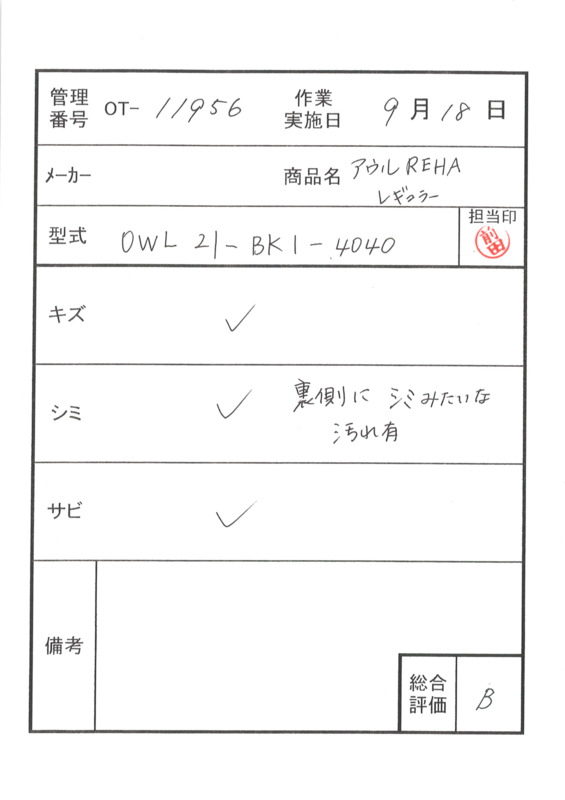 管理番号 OT- 11956 作業実施日 9月18日
メーカー 商品名 アウルREHA
レギュラー
型式 OWL 21-BK1-4040 担当印
前田
キズ ✓
シミ ✓ 裏側に シミみたいな
汚れ有
サビ ✓
備考
総合評価 B